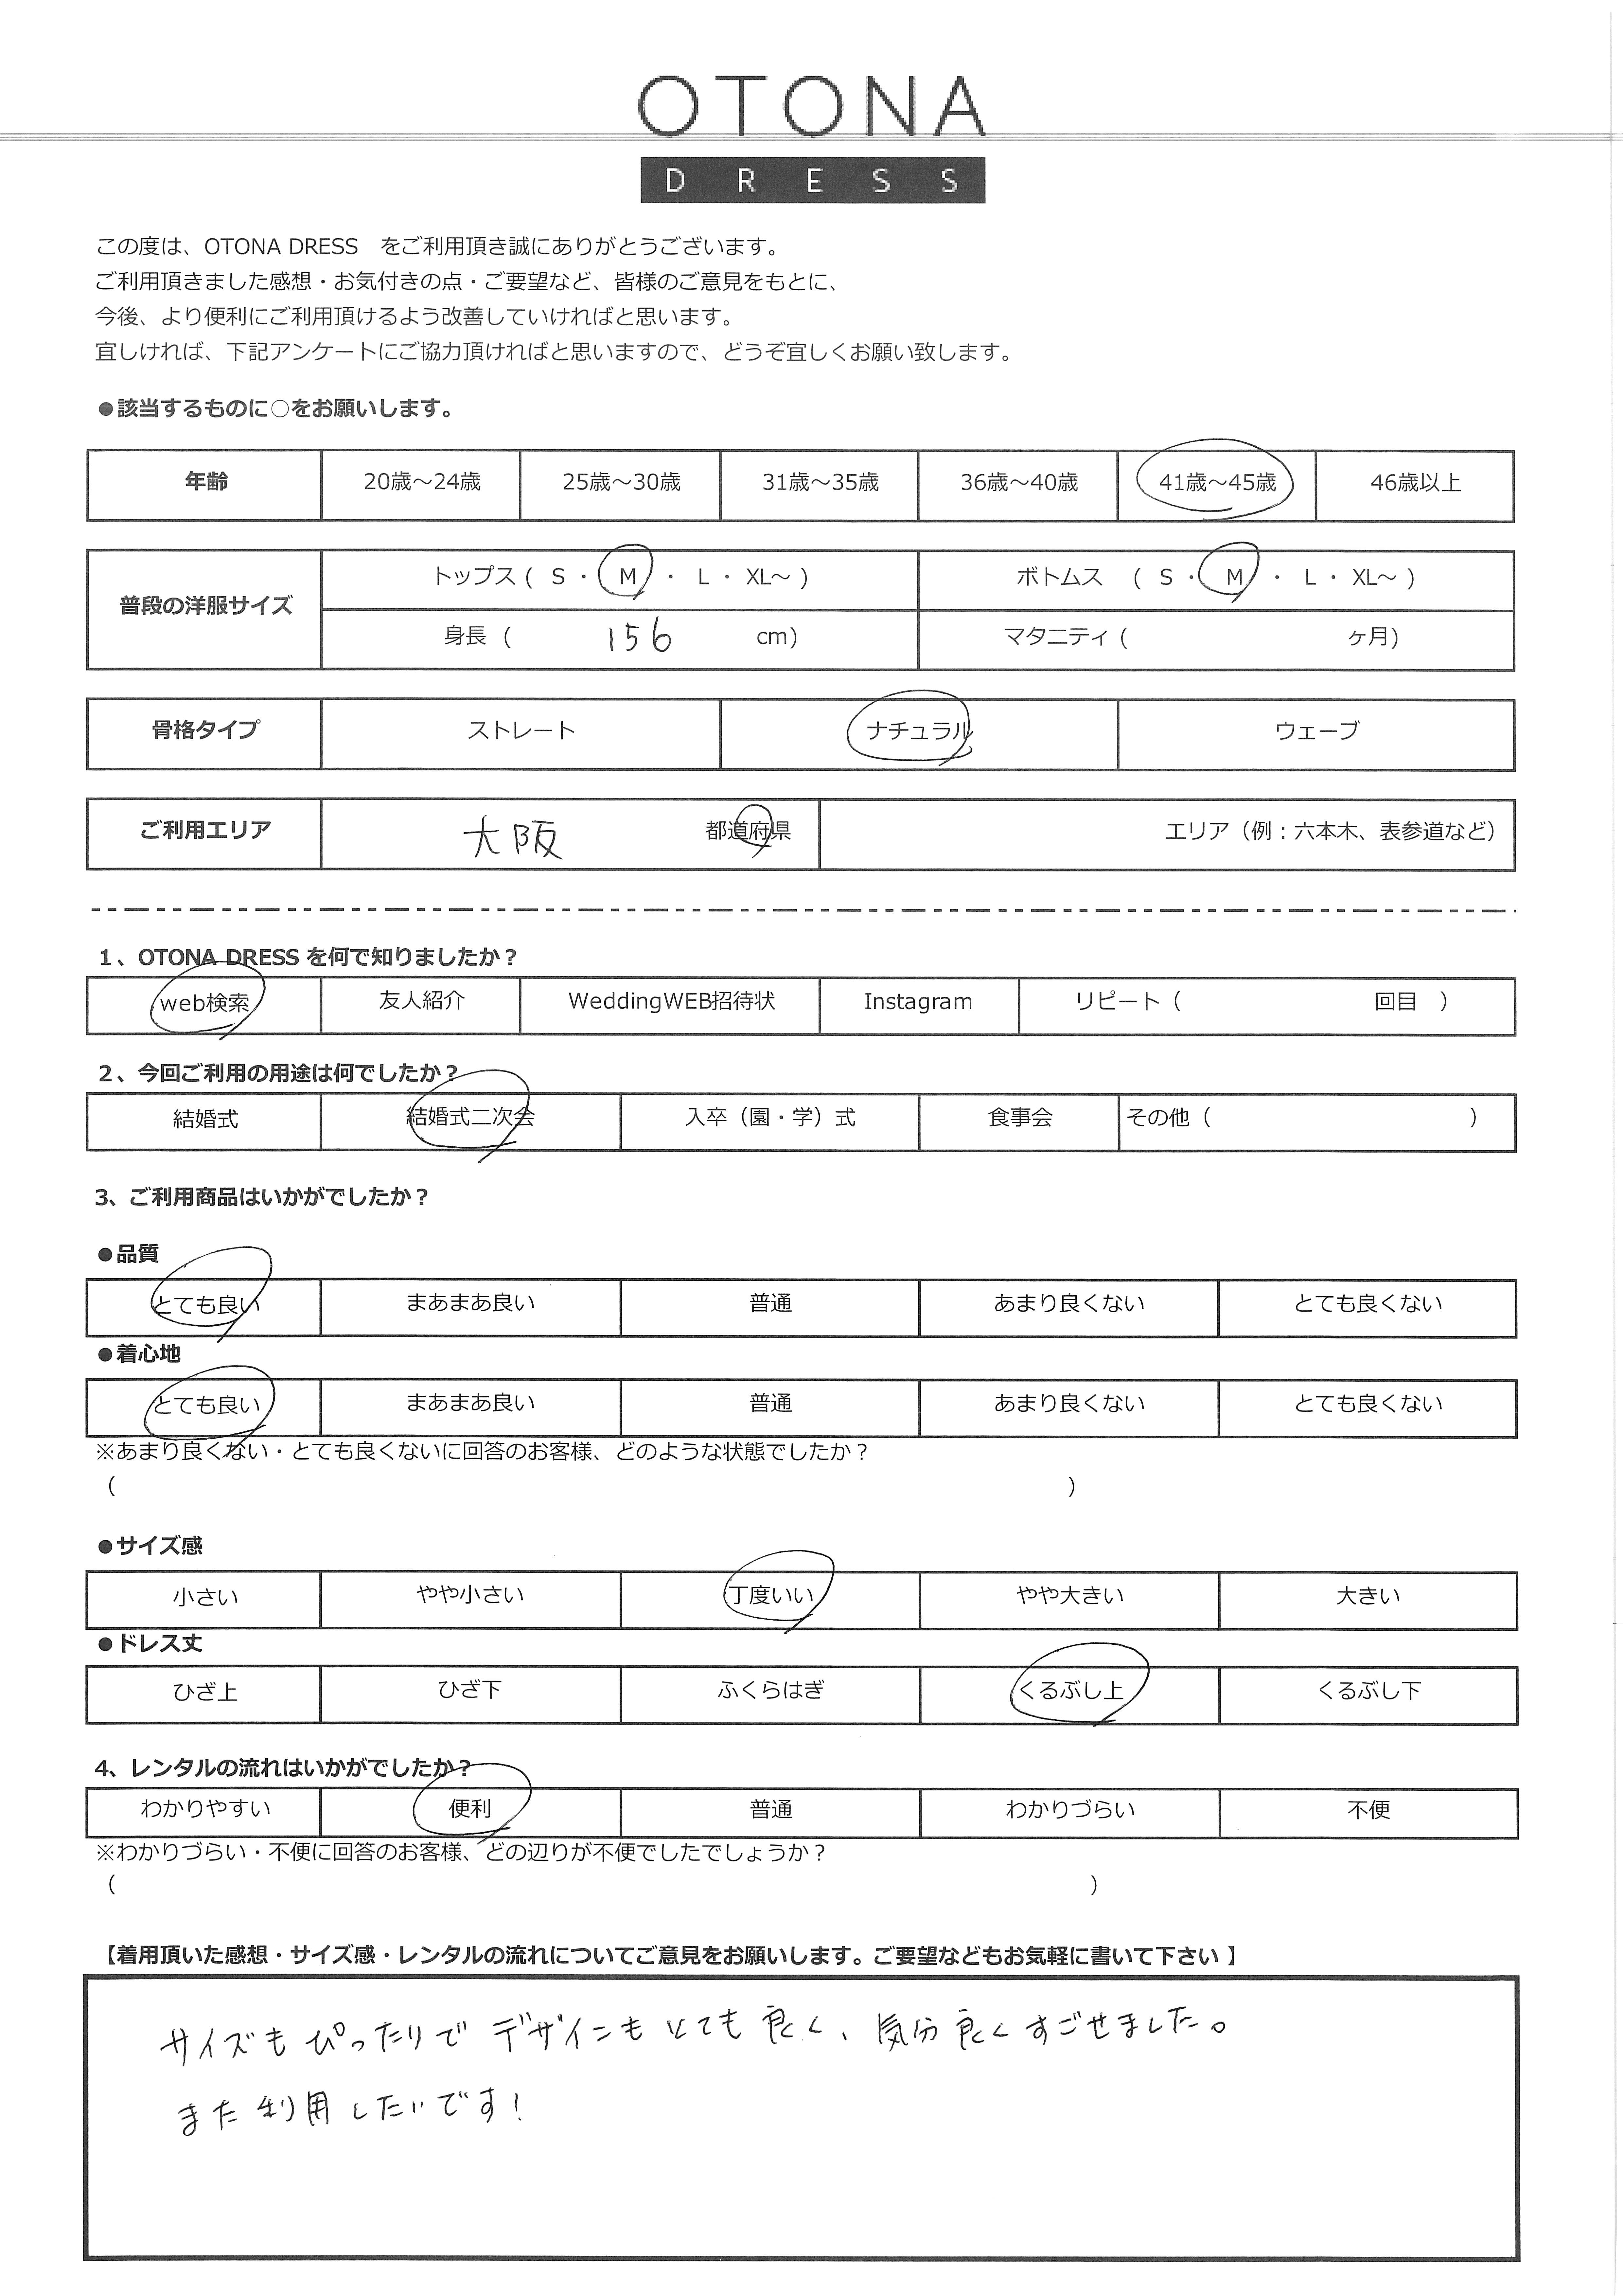 OTONA
DRESS
この度は、OTONA DRESS　をご利用頂き誠にありがとうございます。
ご利用頂きました感想・お気付きの点・ご要望など、皆様のご意見をもとに、
今後、より便利にご利用頂けるよう改善していければと思います。
宜しければ、下記アンケートにご協力頂ければと思いますので、どうぞ宜しくお願い致します。
●該当するものに○をお願いします。
年齢 20歳～24歳 25歳～30歳 31歳～35歳 36歳～40歳 41歳～45歳 46歳以上
普段の洋服サイズ トップス ( S ・ M ・ L ・ XL～ ) ボトムス ( S ・ M ・ L ・ XL～ )
身長 ( 156 cm) マタニティ ( ヶ月)
骨格タイプ ストレート ナチュラル ウェーブ
ご利用エリア 大阪 都道府県 エリア（例：六本木、表参道など）
1、OTONA DRESS を何で知りましたか？
web検索 友人紹介 WeddingWEB招待状 Instagram リピート（ 回目 ）
2、今回ご利用の用途は何でしたか？
結婚式 結婚式二次会 入卒（園・学）式 食事会 その他（ ）
3、ご利用商品はいかがでしたか？
●品質
とても良い まあまあ良い 普通 あまり良くない とても良くない
●着心地
とても良い まあまあ良い 普通 あまり良くない とても良くない
※あまり良くない・とても良くないに回答のお客様、どのような状態でしたか？
（ ）
●サイズ感
小さい やや小さい 丁度いい やや大きい 大きい
●ドレス丈
ひざ上 ひざ下 ふくらはぎ くるぶし上 くるぶし下
4、レンタルの流れはいかがでしたか？
わかりやすい 便利 普通 わかりづらい 不便
※わかりづらい・不便に回答のお客様、どの辺りが不便でしたでしょうか？
（ ）
【着用頂いた感想・サイズ感・レンタルの流れについてご意見をお願いします。ご要望などもお気軽に書いて下さい 】
サイズもぴったりでデザインもとても良く、気分良くすごせました。
また利用したいです！